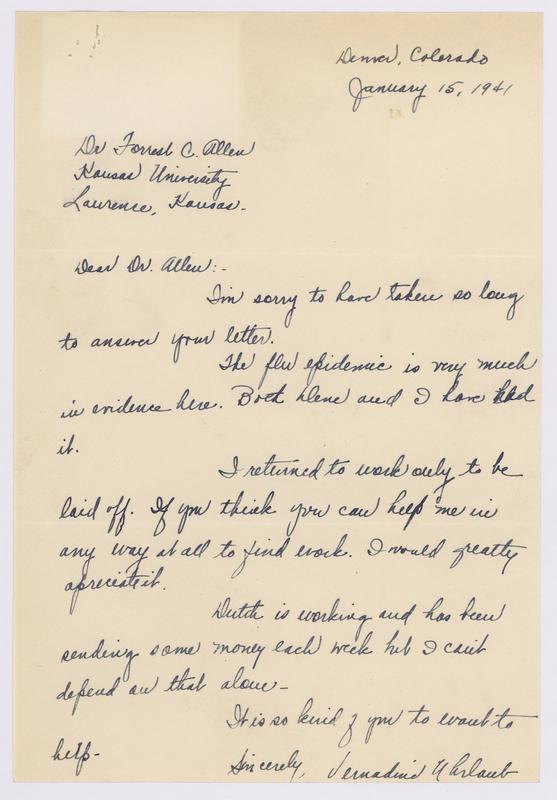 Denver, Colorado
January 15, 1941
Dr Forrest C. Allen
Kansas University
Laurence, Kansas.
Dear Dr. Allen:-
I'm sorry to have taken so long
to answer your letter.
The flu epidemic is very much
in evidence here. Both and I have had
it.
I returned to work only to be
laid off. If you think you can help me in
any way at all to find work. I would greatly
apreciate it.
Dutch is working and has been
sending some money each week but I can't
depend on that alone-
It is so kind of you to want to
help-
Sincerely, Vernadine Uhrlaub